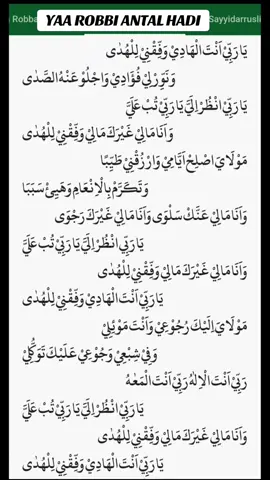 YAA ROBBI ANTAL HADI
Robba
Sayyidarrusli
يَا رَبِّيْ اَنْتَ الْهَادِيْ وَفِّقْنِيْ لِلْهُدٰى
وَنَوِّرْلِيْ فُؤَادِيْ وَاجْلُوْ عَنْهُ الصَّدٰى
يَا رَبِّيْ انْظُرْ اِلَيَّ يَا رَبِّيْ تُبْ عَلَيَّ
وَاَنَا مَالِيْ غَيْرَكَ مَالِيْ وَفِّقْنِيْ لِلْهُدٰى
مَوْلَايَ اصْلِحْ اَيَّامِيْ وَارْزُقْنِيْ طَيِّبًا
وَتَكَرَّمْ بِالْاِنْعَامِ وَهَيِّئْ سَبَبَا
وَاَنَا مَالِيْ عَنْكَ سَلْوَى وَاَنَا مَالِيْ غَيْرَكَ رَجْوَى
يَا رَبِّي انْظُرْ اِلَيَّ يَا رَبِّيْ تُبْ عَلَيَّ
وَاَنَا مَالِيْ غَيْرَكَ مَالِيْ وَفِّقْنِيْ لِلْهُدٰى
يَا رَبِّيْ اَنْتَ الْهَادِيْ وَفِّقْنِيْ لِلْهُدٰى
مَوْلَايَ اِلَيْكَ رُجُوْعِيْ وَاَنْتَ مَوْئِلِيْ
وَفِيْ شِبْعِيْ وَجُوْعِيْ عَلَيْكَ تَوَكُّلِيْ
رَبِّيْ اَنْتَ الْاِلٰهُ رَبِّيْ اَنْتَ الْمَعَهْ
يَا رَبِّيْ انْظُرْ اِلَيَّ يَا رَبِّيْ تُبْ عَلَيَّ
وَاَنَا مَالِيْ غَيْرَكَ مَالِيْ وَفِّقْنِيْ لِلْهُدٰى
يَا رَبِّيْ اَنْتَ الْهَادِيْ وَفِّقْنِيْ لِلْهُدٰى